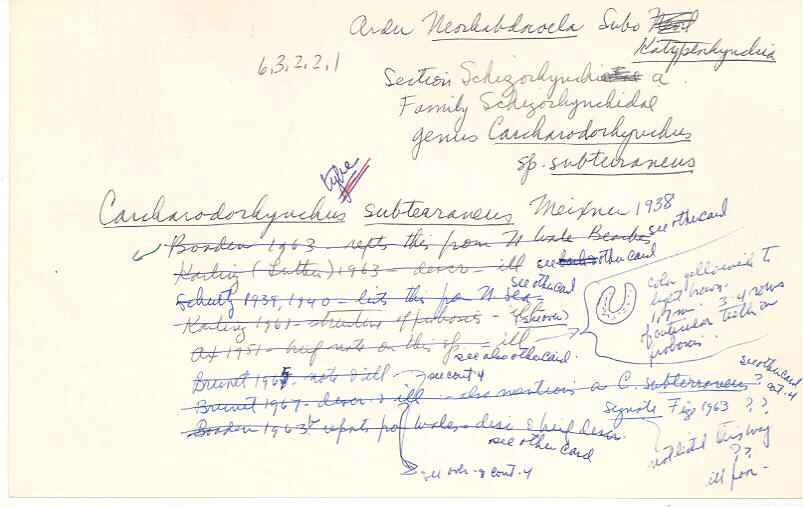 Order Neorhabdocoela Subo
Kalyptorhynchia
6.3.2.2.1
Section Schizorhynchia
Family Schizorhynchidae
genus Carcharodorhynchus
sp. subterraneus
type
Carcharodorhynchus subterraneus Meixner 1938
Boaden 1963 - repts this from N Wale Beaches see other card
Karling (Luther) 1963 - descr - ill see other card
see other card
Schultz 1939, 1940 - lists this for N Sea -
Karling 1961 - structure of proboscis -
Ax 1951 - brief note on this sp. - ill
see also other card.
color yellowish to
light brown.
1.7 mm. 3-4 rows
of cuticular teeth on
proboscis.
Brunet 1965 - note & ill - see cont. 4
see other card
cont. 4
Brunet 1967 - descr & ill - also mentions a C. subterraneus ?
signate Fig 1963 ? ?
Boaden 1963b reports for Wales - disc & brief descr.
see other card
not listed this way
??
ill for -
see over - & cont. 4